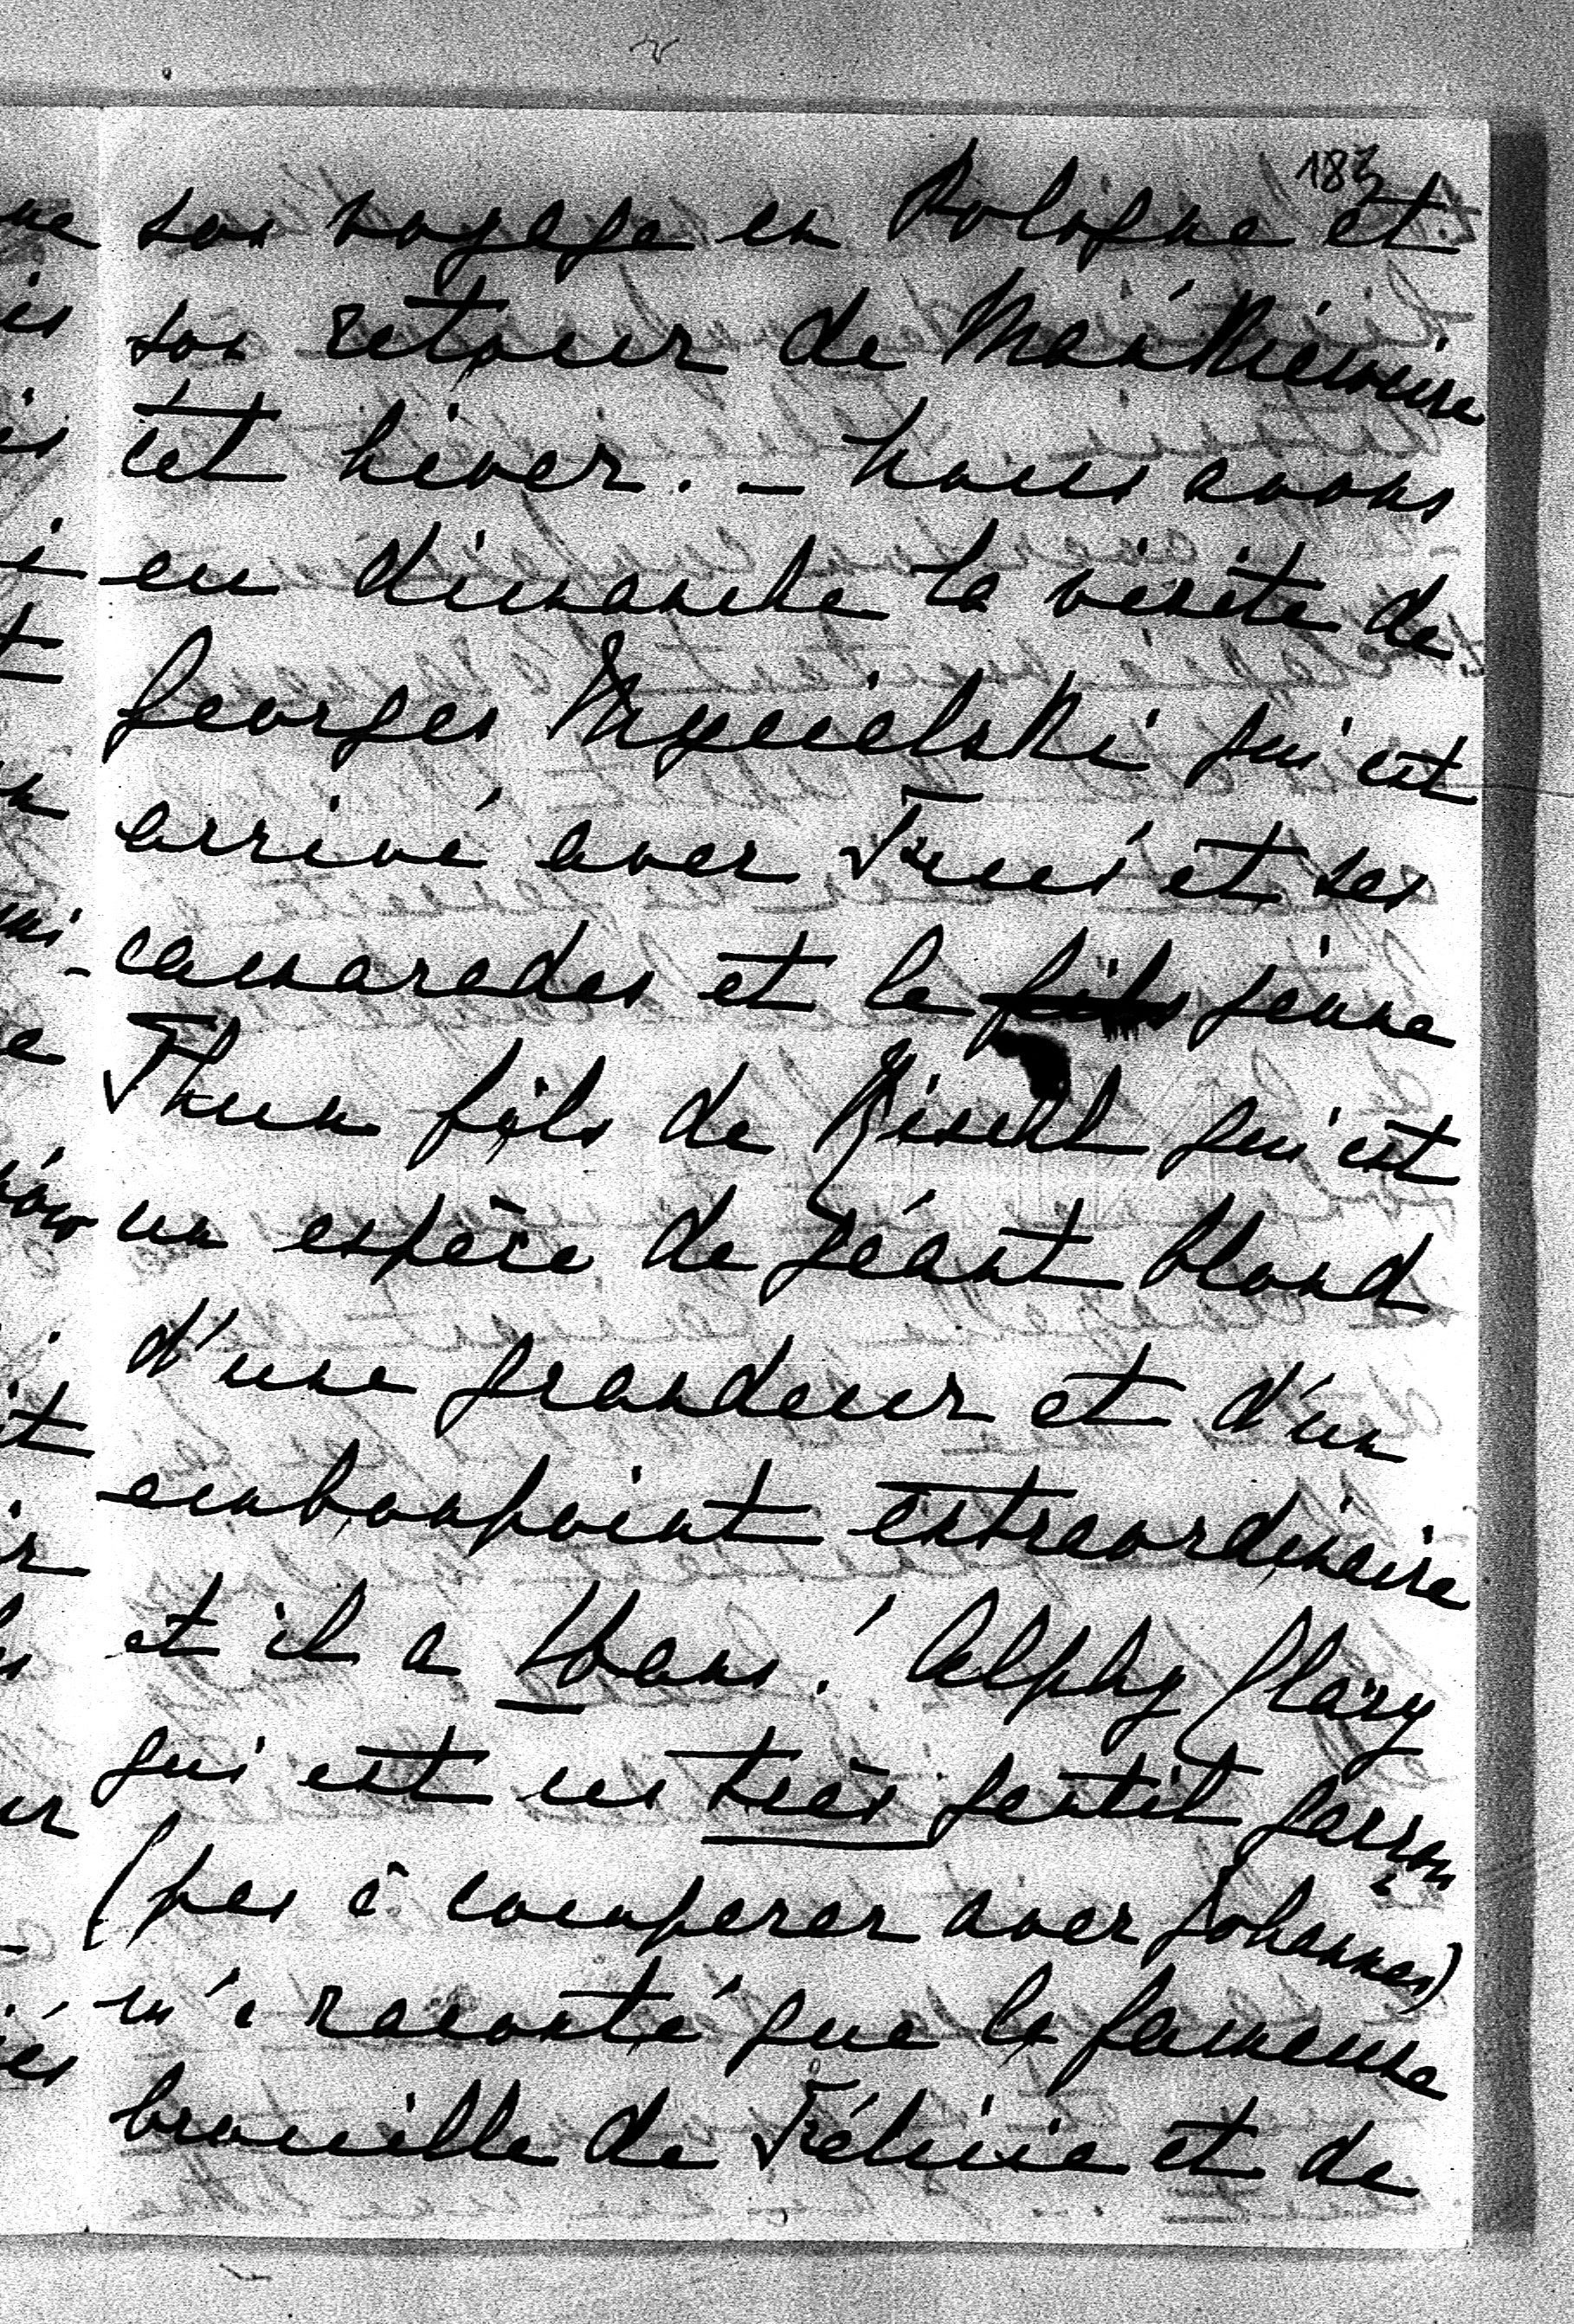 183
son voyage en Pologne et
son retour de
cet hiver. – Nous avons
eu dimanche la visite de
Georges Mycielski qui est
arrivé avec et ses
camarades et le fils jeune
Thun fils de qui est
un espèce de géant blond
d'une grandeur et d'un
embonpoint extraordinaire
et il a ! Alphy Clary
qui est un très gentil garçon
(pas à comparer avec Johannes)
m'a raconté que la fameuse
brouille de Félicie et de